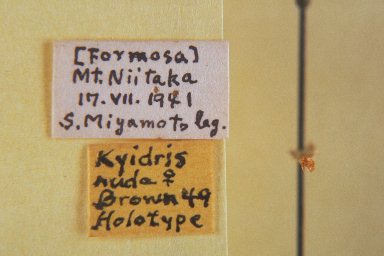 [Formosa]
Mt. Niitaka
17. VII. 1941
S. Miyamoto leg.
Kyidris
nuda ♀
Brown 49
Holotype